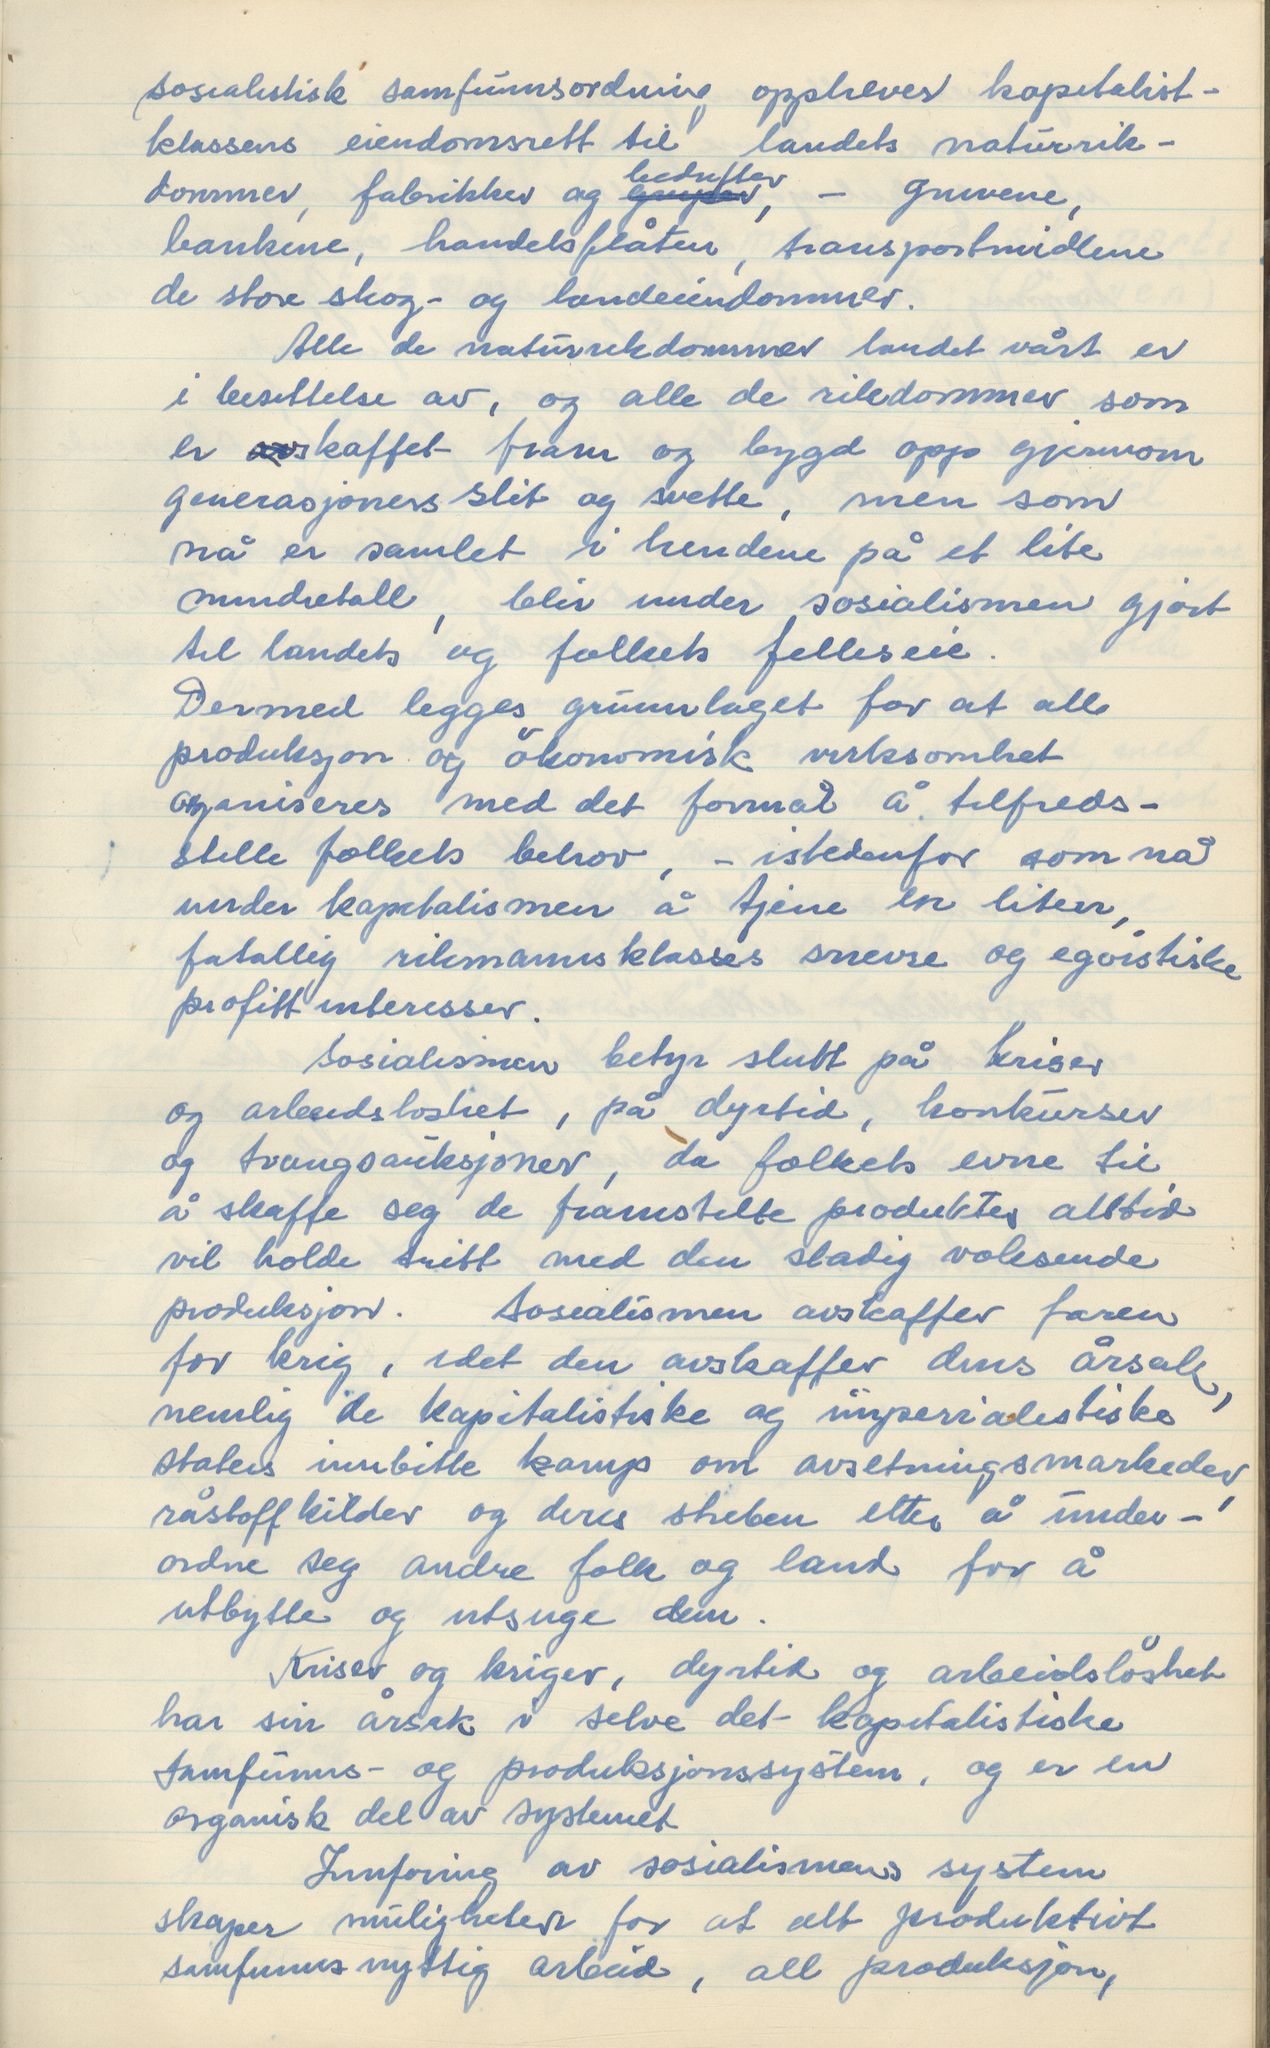 sosialistisk samfunnsordning opphever kapitalist-
klassens eiendomsrett til landets naturrik-
dommer, fabrikker og bedrifter, - gruvene,
bankene, handelsflåten, transportmidlene
de store skog- og landeiendommer.
Alle de naturrikdommer landet vårt er
i besittelse av, og alle de rikdommer som
er skaffet fram og bygd opp gjennom
generasjoners slit og svette, men som
nå er samlet i hendene på et lite
mindretall, blir under sosialismen gjort
til landets og folkets felleseie.
Dermed legges grunnlaget for at alle
produksjon og ökonomisk virksomhet
organiseres med det formål å tilfreds-
stille folkets behov, - istedenfor som nå
under kapitalismen å tjene en liten,
fåtallig rikmannsklasses snevre og egoistiske
profittinteresser.
Sosialismen betyr slutt på kriser
og arbeidsloshet, på dyrtid, konkurser
og tvangsauksjoner, da folkets evne til
å skaffe seg de framstilte produkter alltid
vil holde tritt med den stadig voksende
produksjon. Sosialismen avskaffer faren
for krig, idet den avskaffer dens årsak,
nemlig de kapitalistiske og imperialistiske
staters innbitte kamp om avsetningsmarkeder,
råstoffkilder og deres streben etter å under-
ordne seg andre folk og land for å
utbytte og utsuge dem.
Kriser og kriger, dyrtid og arbeidslöshet
har sin årsak i selve det kapitalistiske
samfunns- og produksjonssystem, og er en
organisk del av systemet
Innforing av sosialismens system
skaper muligheter for at alt produktivt
samfunnsnyttig arbeid, all produksjon,